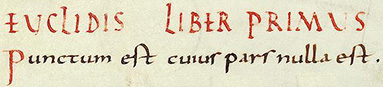 EUCLIDIS LIBER PRIMUS
Punctum est cuius pars nulla est.